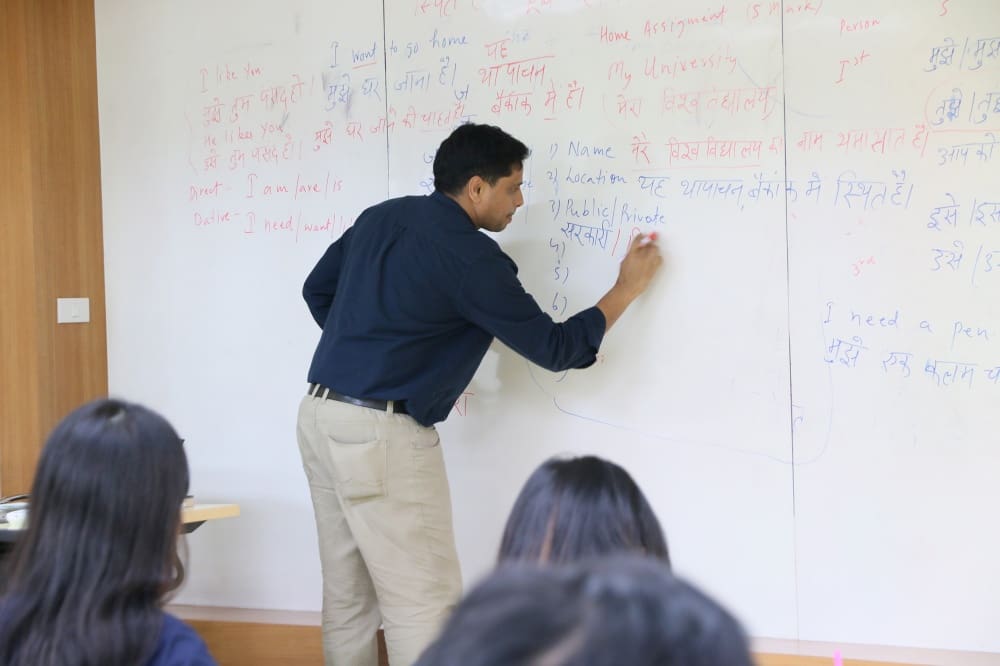 I like you
मुझे तुम पसंद हो।
He likes you
इसे तुम पसंद हो।
Direct - I am/are/is
Dative - I need/want/
I want to go home
मुझे घर जाना है।
मुझे घर जाने की चाहत है।
यह
थापाचन
बैंकाक में है।
Home Assigment (5 Mark)
My University
(मेरा विश्वविद्यालय)
1) Name मेरे विश्वविद्यालय का नाम थमासात है।
2) Location यह थापाचन, बैंकाक में स्थित है।
3) Public/Private
सरकारी /
4)
5)
6)
Person
1st
मुझे /
तुझे /
आपको
इसे /
3rd
उसे /
I need a pen
मुझे एक कलम